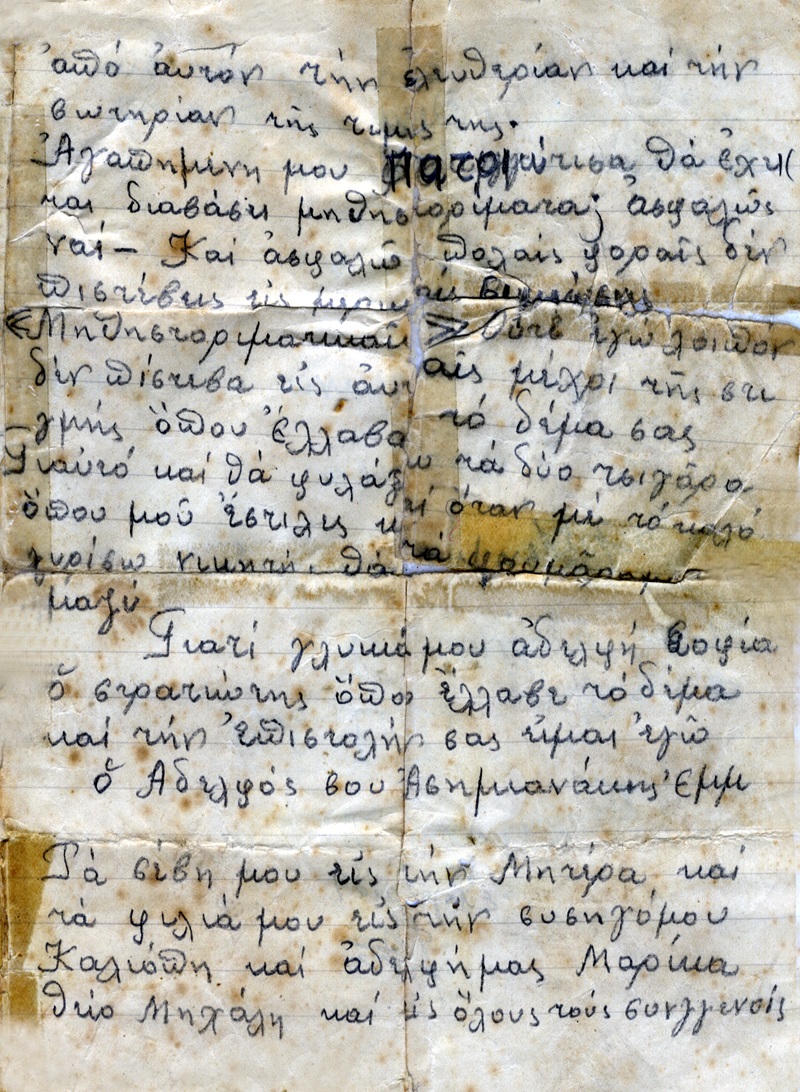 ἀπό ἀυτόν τήν ἐλευθερίαν καί τήν
σωτηρίαν τῆς τιμῆς της.
Ἀγαπημένη μου πατριώτισα θά ἔχη(
ται διαβάσει μηθηστορίματα; ἀσφαλῶς
ναί – Καί ἀσφαλῶ πολαίς φοραῖς δέν
πιστέβεις εἰς μερικαίς
«Μηθηστοριματικαίς» Ούτε ἐγώ λοιπόν
δέν πίστεβα εἰς ἀυταῖς μέχρι τῆς στι
γμῆς ὅπου ἔλλαβα τό δέμα σας
Γιαὐτό καί θά φυλάξω τά δύο τσιγάρα
ὅπου μοῦ ἔστιλες καί ὅταν μέ τό καλό
γυρίσω νικητής θά τά φουμάρομε
μαζύ
Γιατί γλυκιά μου ἀδελφή Σοφία
ὅ στρατιώτης ὅπου ἔλλαβε τό δέμα
καί τήν ἐπιστολήν σας εἰμαι ἐγῶ
ὅ Αδελφός σου Ἀσημιανάκης Ἐμμ
Τά σέβη μου εἰς τήν Μητέρα καί
τά φιλιά μου εἰς τήν συσηγόμου
Καλιόπη καί ἀδελφήμας Μαρίκα
θείο Μηχάλη καί εἰς ὅλους τούς συνγγενείς